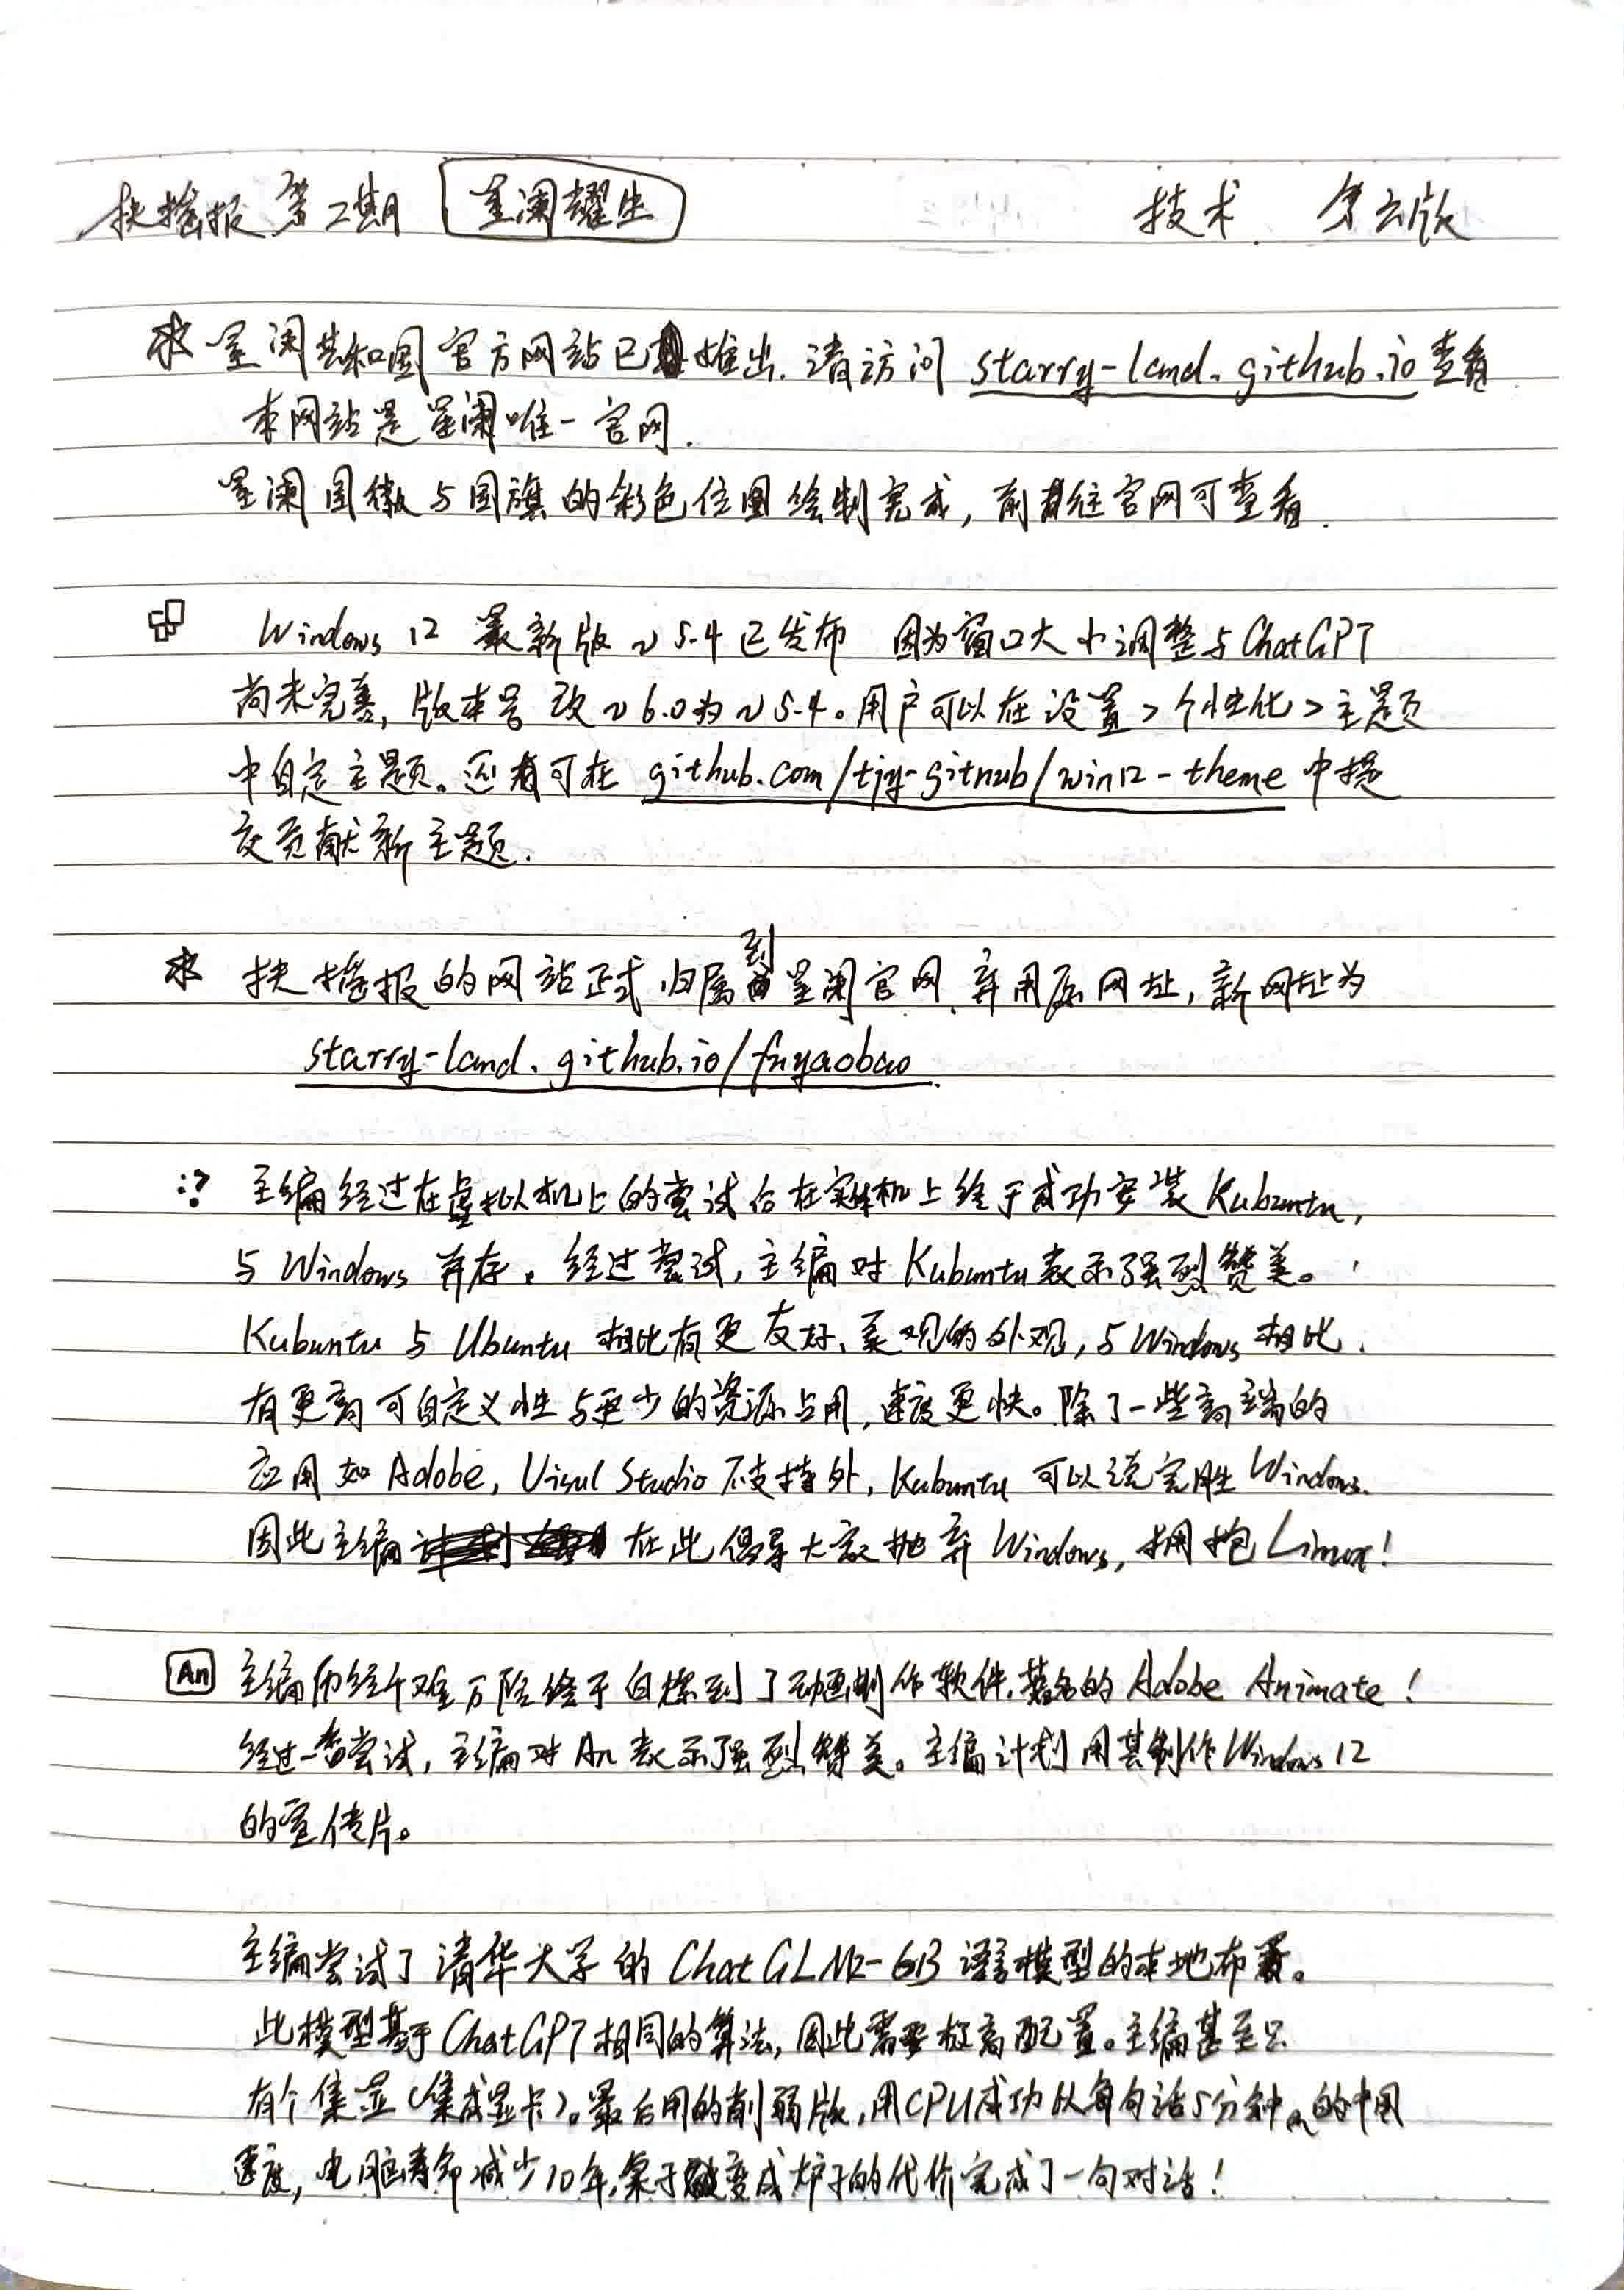 扶摇报 第二期 星阑耀生 技术 第六版
星阑共和国官方网站已推出.请访问 starry-land.github.io 查看
本网站是星阑唯一官网.
星阑国徽与国旗的彩色位图绘制完成,前往官网可查看.
Windows 12 最新版 v5.4 已发布 因为窗口大小调整与ChatGPT
尚未完善,版本号改v6.0为v5.4。用户可以在设置>个性化>主题
中自定主题。还可在 github.com/tjy-gitnub/win12-theme 中提
交贡献新主题.
扶摇报的网站正式归属到星阑官网.弃用原网址,新网址为
starry-land.github.io/fuyaobao.
主编经过在虚拟机上的尝试后在实体机上终于成功安装Kubuntu,
与Windows 并存。经过尝试,主编对Kubuntu表示强烈赞美。
Kubuntu 与 Ubuntu 相比有更友好、美观的外观,与Windows相比.
有更高可自定义性与更少的资源占用,速度更快。除了一些高端的
应用如Adobe, Visul Studio 不支持外, Kubuntu 可以说完胜Windows.
因此主编 在此倡导大家抛弃Windows, 拥抱Linux!
An 主编历经千难万险终于白嫖到了动画制作软件,著名的Adobe Animate!
经过一番尝试,主编对An表示强烈赞美。主编计划用其制作Windows 12
的宣传片。
主编尝试了清华大学的ChatGLM2-6B语言模型的本地布置。
此模型基于ChatGPT相同的算法,因此需要极高配置。主编甚至只
有个集显(集成显卡)。最后用的削弱版,用CPU成功以每句话5分钟的中国
速度,电脑寿命减少10年,桌子变成炉子的代价完成了一句对话!